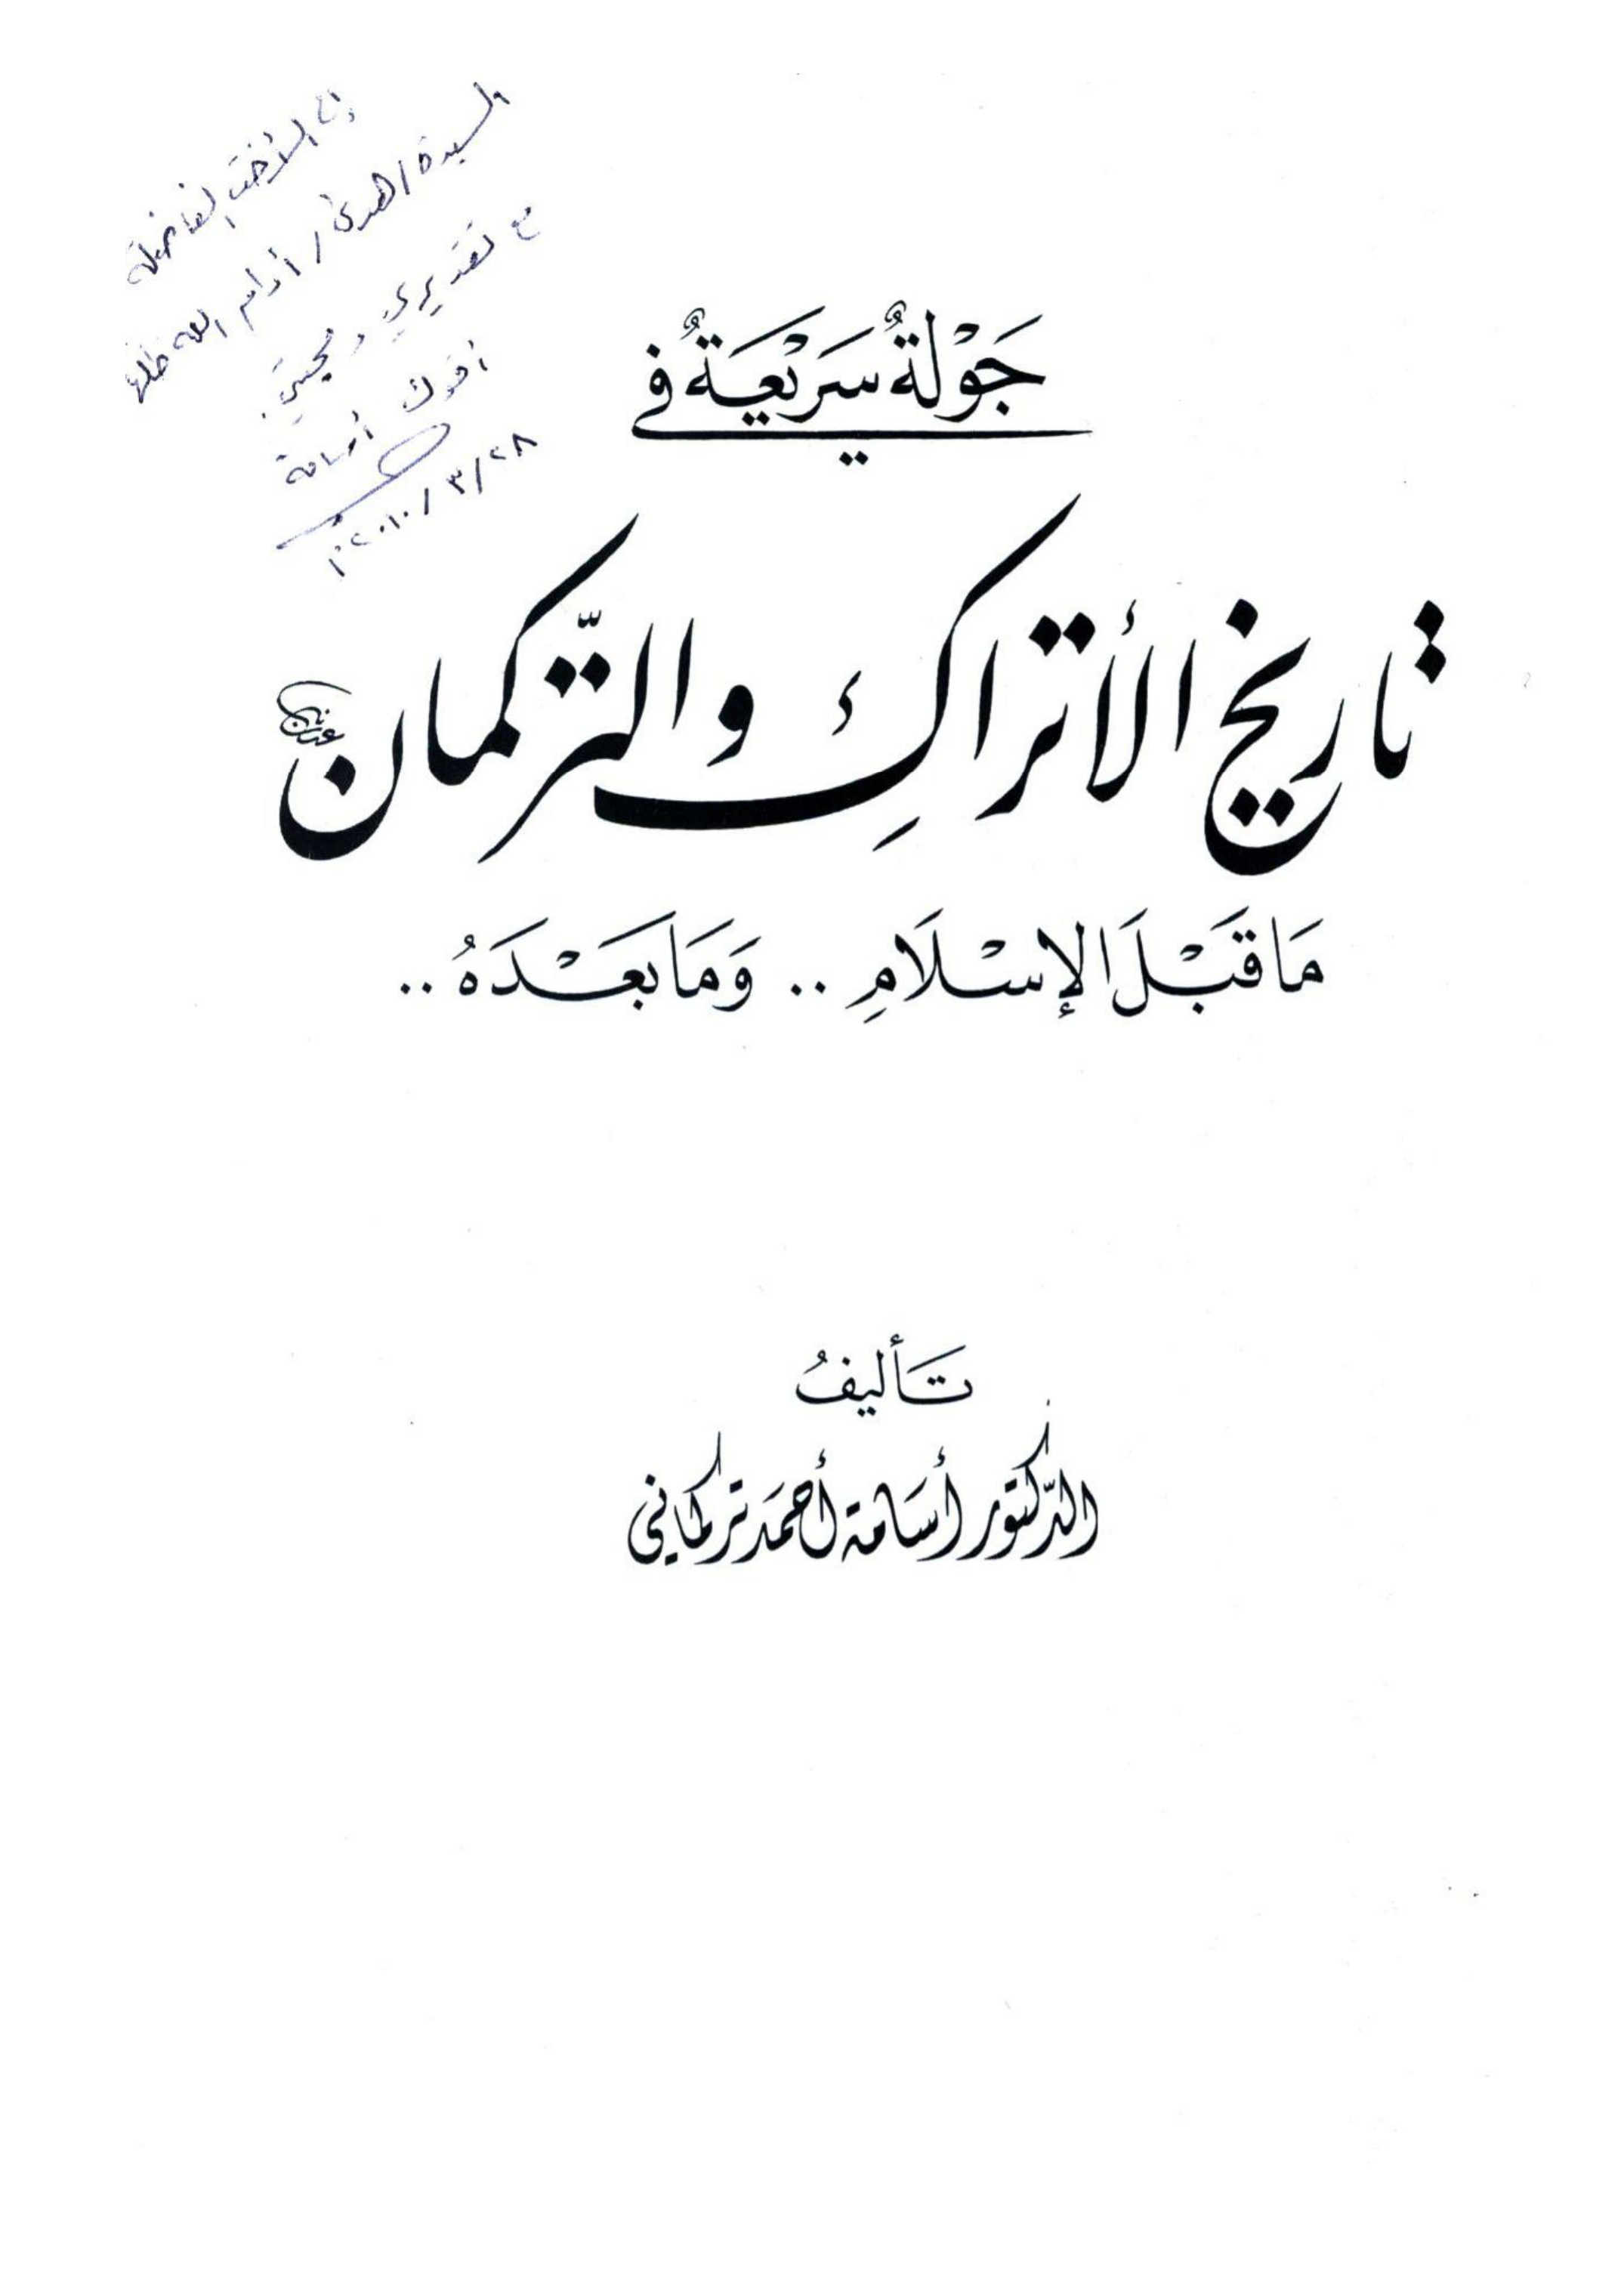 إلى الأخت الفاضلة
السيدة / هدى / أدام الله
مع تقديري ومحبتي
أخوك أسامة
٢٠١٠/٣/٢٨م
جَوْلَةٌ سَرِيْعَةٌ في
تاريخ الأتراكِ والتّركمان
مَا قَبْلَ الإِسْلَامِ .. وَمَا بَعْدَهُ ..
تَأليفُ
الدّكتور أسَامة أحمَد تركماني